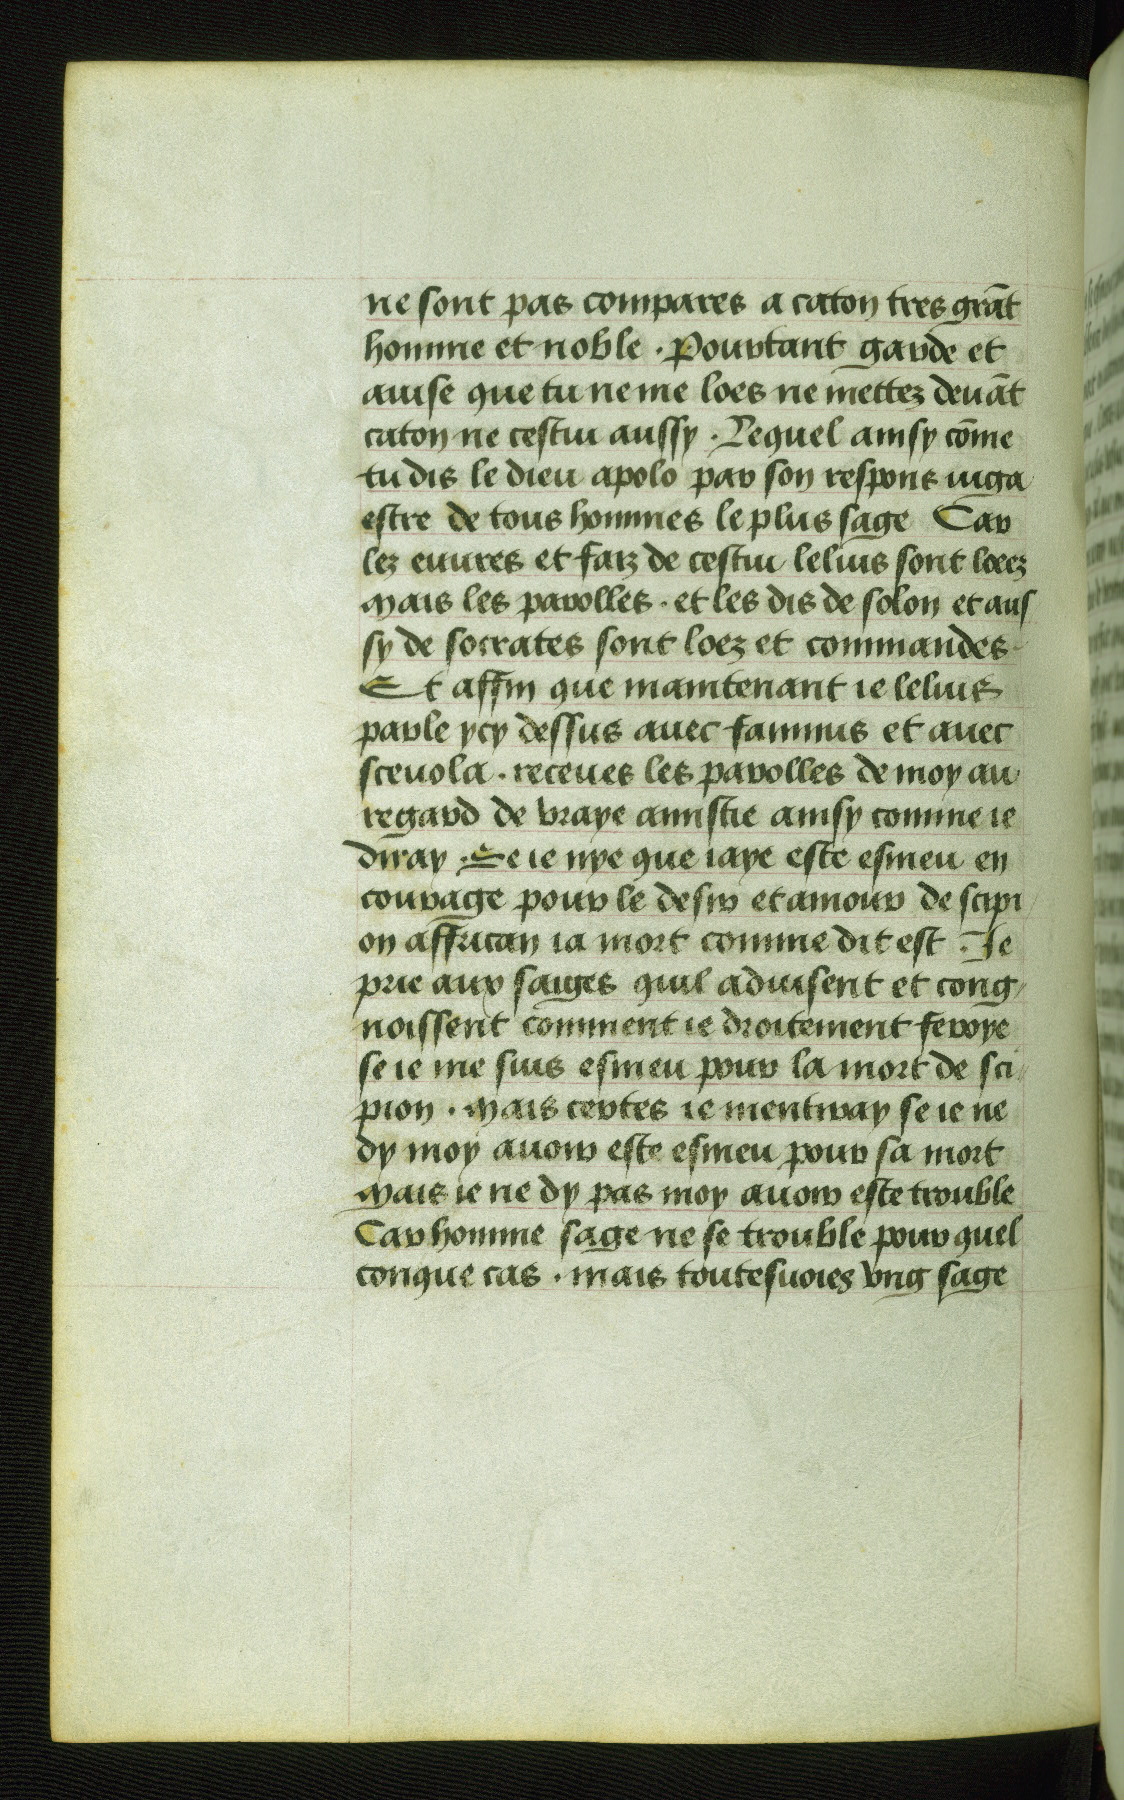 ne sont pas compares a caton tres grãt
homme et noble · Pourtant garde et
auise que tu ne me loes ne mettez deuãt
caton ne cestui aussy · Lequel ainsy cõme
tu dis le dieu apolo par son respons iuga
estre de tous hommes le plus sage Car
lez euures et faiz de cestui lelius sont loeez
Mais les parolles · et les dis de solon et aus
sy de socrates sont loez et commandes
Et affin que maintenant ie lelius
parle ycy dessus auec fannius et auec
sceuola · receues les parolles de moy au
regard de vraye amistie ainsy comme ie
diray · Se ie nye que iaye este esmeu en
courage pour le desir et amour de scipi
on affrican ia mort comme dit est · Je
prie aux saiges quil aduisent et cong
noissent comment ie droitement feroye
se ie me suis esmeu pour la mort de sci
pion · Mais certes ie mentiray se ie ne
dy moy auoir este esmeu pour sa mort
Mais ie ne dy pas moy auoir este trouble
Car homme sage ne se trouble pour quel
conque cas · mais toutesuoies vng sage